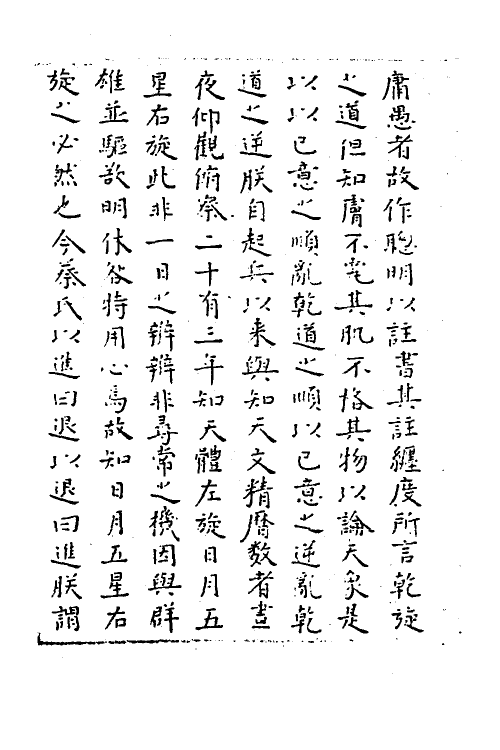 庸愚者故作聰明以註書其註纏度所言乾旋
之道但知膚不究其肌不格其物以論天象是
以以已意之順亂乾道之順以已意之逆亂乾
道之逆朕自起兵以来與知天文精曆数者晝
夜仰觀俯察二十有三年知天體左旋日月五
星右旋此非一日之辨辨非尋常之機因與群
雄並驅欲明休咎特用心焉故知日月五星右
旋之必然也今蔡氏以進曰退以退曰進朕謂